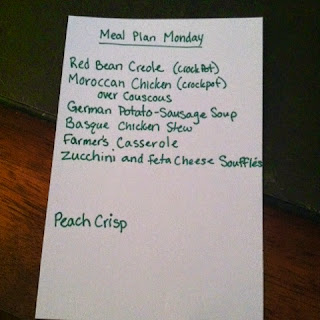 Meal Plan Monday
Red Bean Creole (crockpot)
Moroccan Chicken (crockpot)
over Couscous
German Potato-Sausage Soup
Basque Chicken Stew
Farmer's Casserole
Zucchini and feta Cheese Soufflés
Peach Crisp